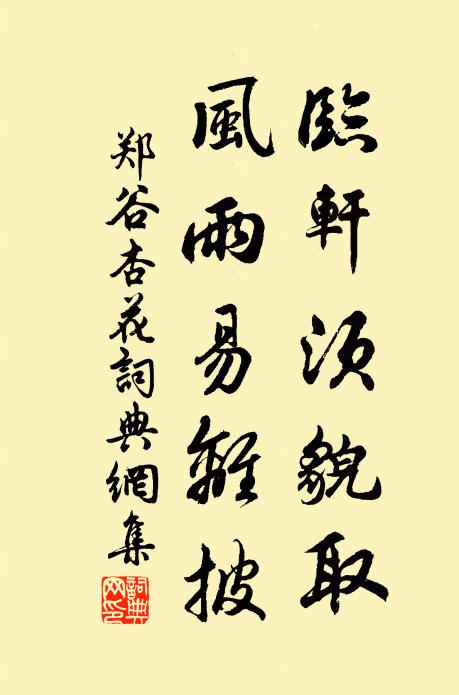 臨軒須貌取
風雨易離披
郑谷杏花詞典網集
詞典網印